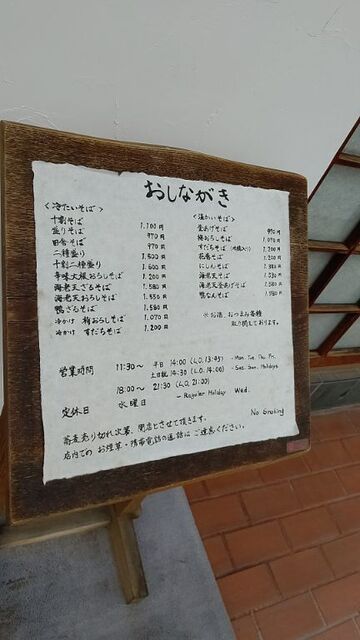 おしながき
<冷たいそば>
十割そば 1,100円
盛りそば 970円
田舎そば 970円
二種盛り 1,500円
十割二種盛り 1,600円
辛味大根おろしそば 1,200円
海老天ざるそば 1,580円
海老天おろしそば
鴨ざるそば 1,580円
冷かけ 梅おろしそば 1,070円
冷かけ すだちそば 1,200円
<温かいそば>
釜あげそば 970円
梅おろしそば 1,070円
すだちそば 1,200円
花巻そば
にしんそば
海老天そば
海老天釜あげそば
鴨なんそば
※お酒、おつまみ各種
取り揃しております。
営業時間 11:30〜 平日 14:00 (L.O. 13:45) - Mon. Tue. Thu. Fri.
土日祝 14:30 (L.O. 14:00) - Sat. Sun. Holidays
18:00〜 21:30 (L.O. 21:00)
定休日 水曜日 - Regular Holiday Wed.
No Smoking
蕎麦売り切れ次第、閉店とさせて頂きます。
店内での お煙草・携帯電話の通話は ご遠慮ください。